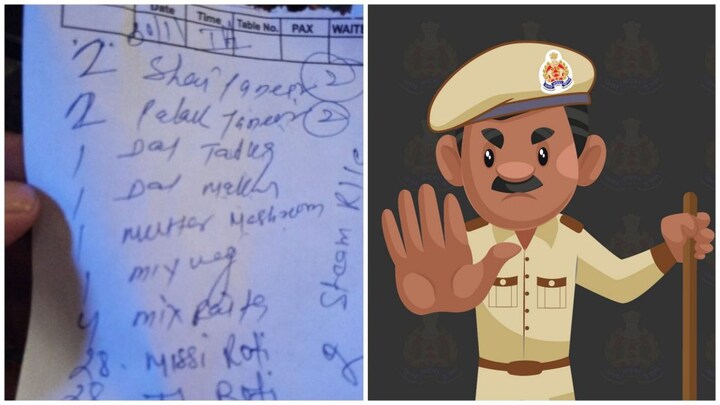 Date Time Table No. PAX WAITE
2 Shai Paneer 2
2 Palak Paneer 2
1 Dal Tadka
1 Dal Makhni
1 Mutter Mashroom
1 mix veg
4 mix Raita
28. Missi Roti
28 Roti
Steam Rice